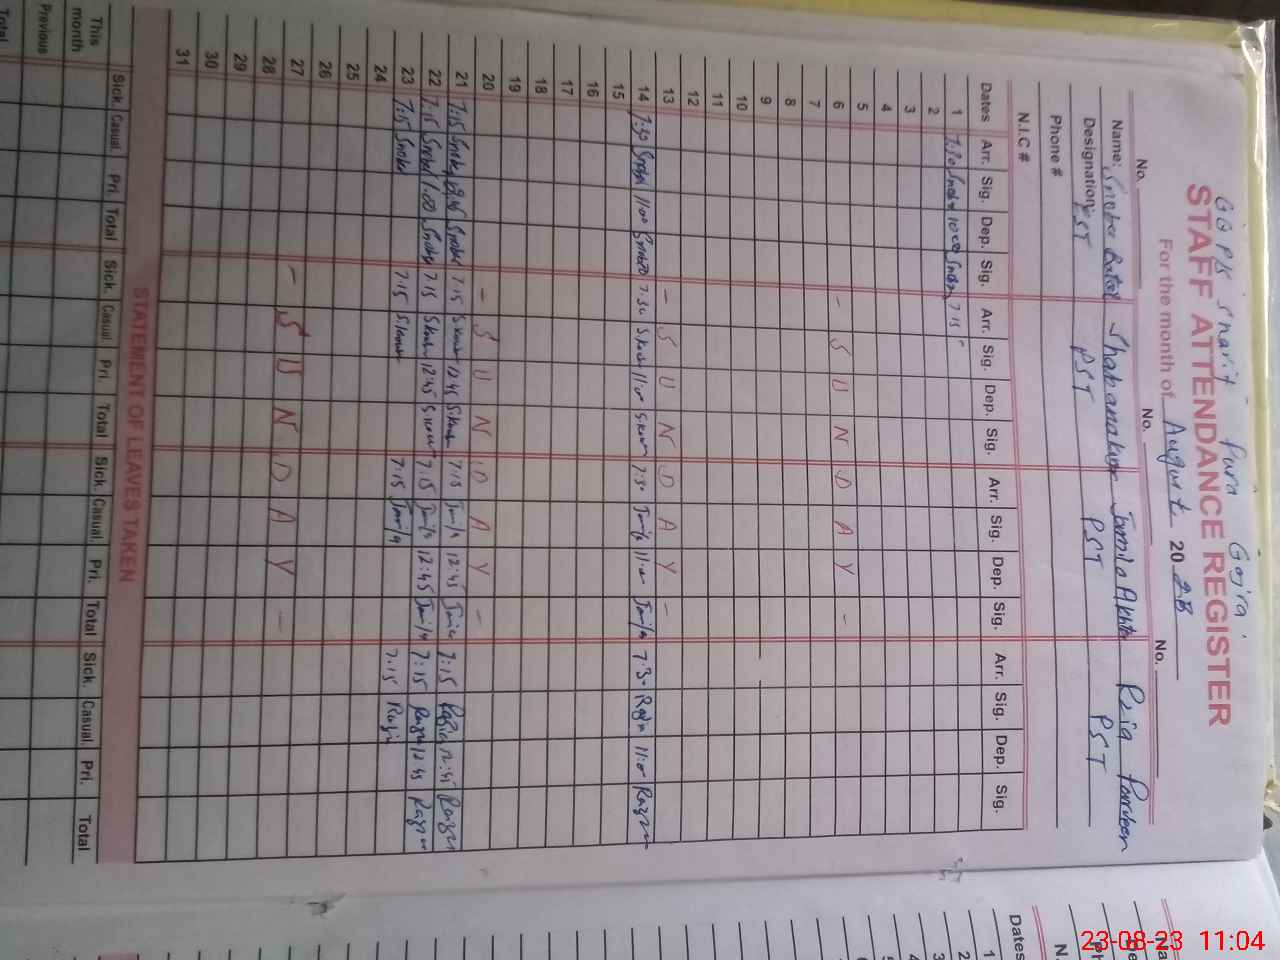 GGPS Sharif Pura Gojra.
STAFF ATTENDANCE REGISTER
For the month of August 2023
No. No. No.
Name: Snober Batool Shabana Kausar Jamila Akhtar Razia Parveen
Designation: PST PST PST PST
Phone #
N.I.C #
Dates Arr. Sig. Dep. Sig. Arr. Sig. Dep. Sig. Arr. Sig. Dep. Sig. Arr. Sig. Dep. Sig.
1 7:30 Snober 10:00 Snober 7:15
2
3
4
5
6 - S U N D A Y -
7
8
9
10
11
12
13 - S U N D A Y -
14 7:30 Snober 11:00 Snober 7:30 S.Kausar 11:00 S.Kausar 7:30 Jamila 11:00 Jamila 7:30 Razia 11:00 Razia
15
16
17
18
19
20 - S U N D A Y -
21 7:15 Snober 12:45 Snober 7:15 S.Kausar 12:45 S.Kausar 7:15 Jamila 12:45 Jamila 7:15 Razia 12:45 Razia
22 7:15 Snober 1:00 Snober 7:15 S.Kausar 12:45 S.Kausar 7:15 Jamila 12:45 Jamila 7:15 Razia 12:45 Razia
23 7:15 Snober 7:15 S.Kausar 7:15 Jamila 7:15 Razia
24
25
26
27 - S U N D A Y -
28
29
30
31
STATEMENT OF LEAVES TAKEN
Sick. Casual. Pri. Total Sick. Casual. Pri. Total Sick. Casual. Pri. Total Sick. Casual. Pri. Total
This month
Previous
Total
Dates
1
2
3
4
5
23-08-23 11:04